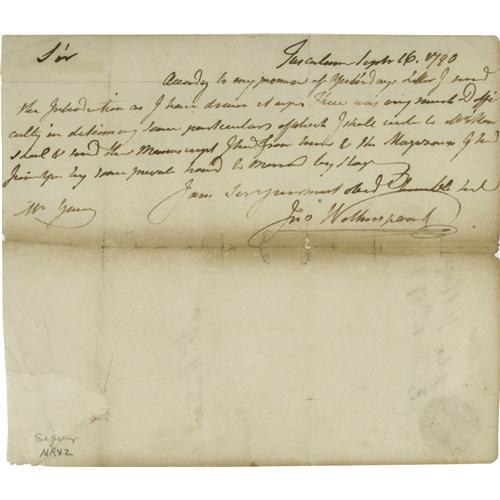 Sir Tusculum Septr 26. 1790
According to my promise of Yesterdays Letter I send
the Introduction as I have drawn it up. There was very much Diffi
culty in determining some particulars of which I shall write to Mr
& send the Manuscript I had from him & the Magazines I had
from you by some private hand to Morrow by Stage
I am Sir your most Obed humble Set
Mr Young Jno Witherspoon
Signer